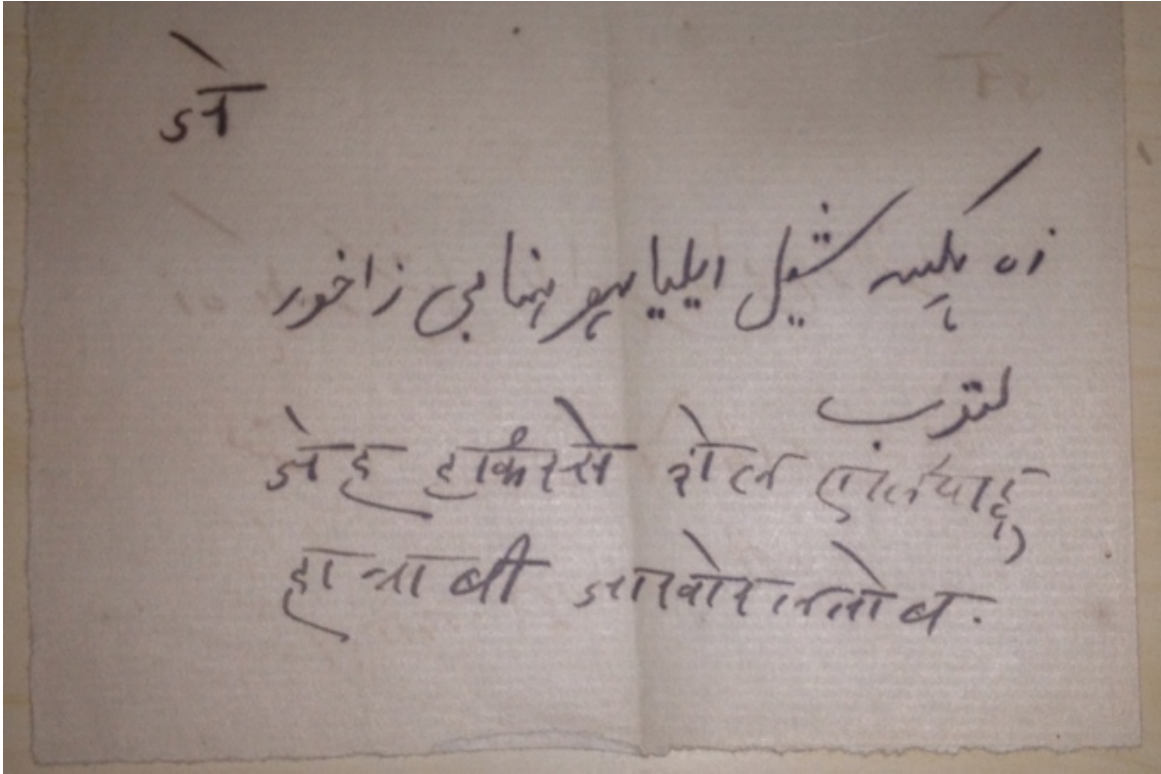 जे
زہ ہکیسہ شیل ایلیاہو ہنابی زاخور
لتوب
जेह हाकिस्से शेल एलियाहु
हानाबी जाखोर लतोब.